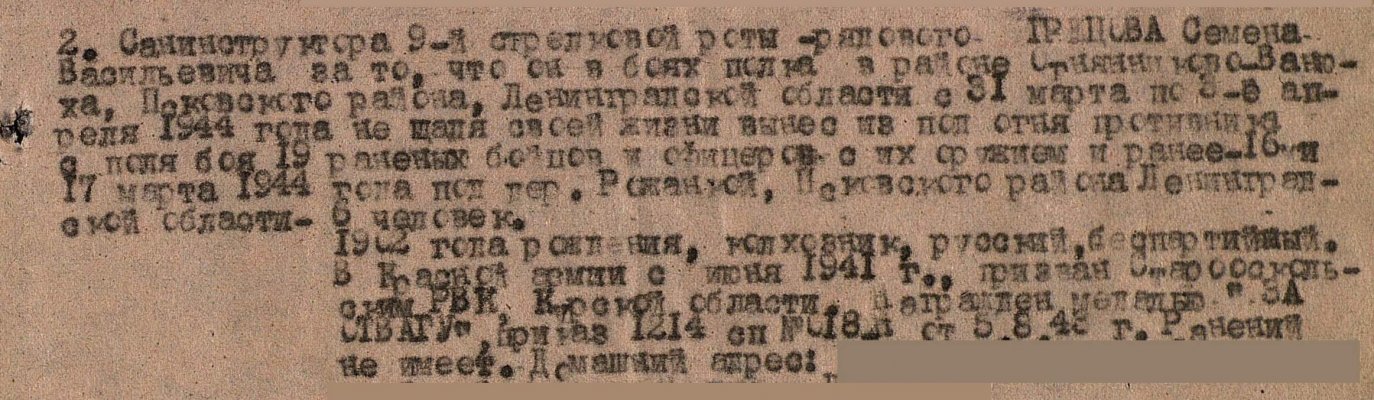 2. Санинструктора 9-й стрелковой роты -рядового Семена
Васильевича за то, что он в боях полка в районе
ха, Псковского района, Ленинградской области с 31 марта по 3-е ап-
реля 1944 года не щадя своей жизни вынес из под огня противника
с поля боя 19 раненых бойцов и офицеров с их оружием и ранее-16 и
17 марта 1944 года под дер. Рожанкой, Псковского района Ленинград-
ской области- 6 человек.
1902 года рождения, колхозник, русский, беспартийный.
В Красной армии с июня 1941 г., призван СтарооскOль-
ским РВК, Курской области. Награжден медалью " ЗА
ОТВАГУ", приказ 1214 сп от г. Ранений
не имеет. Домашний адрес: